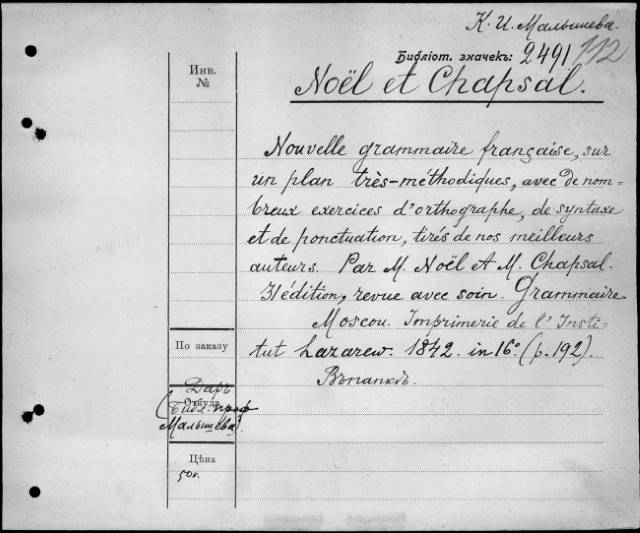 К. И. Малышева.
Библіот. значекъ: 2491/112
Инв.
№
Noël et Chapsal.
Nouvelle grammaire française, sur
un plan très-méthodiques, avec de nom=
breux exercices d'orthographe, de syntaxe
et de ponctuation, tirés de nos meilleurs
auteurs. Par M. Noël et M. Chapsal.
31 édition, revue avec soin. Grammaire.
Moscou. Imprimerie de l'Insti=
tut Lazarew. 1842. in 16º. (p. 192).
Въ папкѣ.
По заказу
Даръ
Откуда
(Библ. проф
Малышева).
Цѣна
50 к.